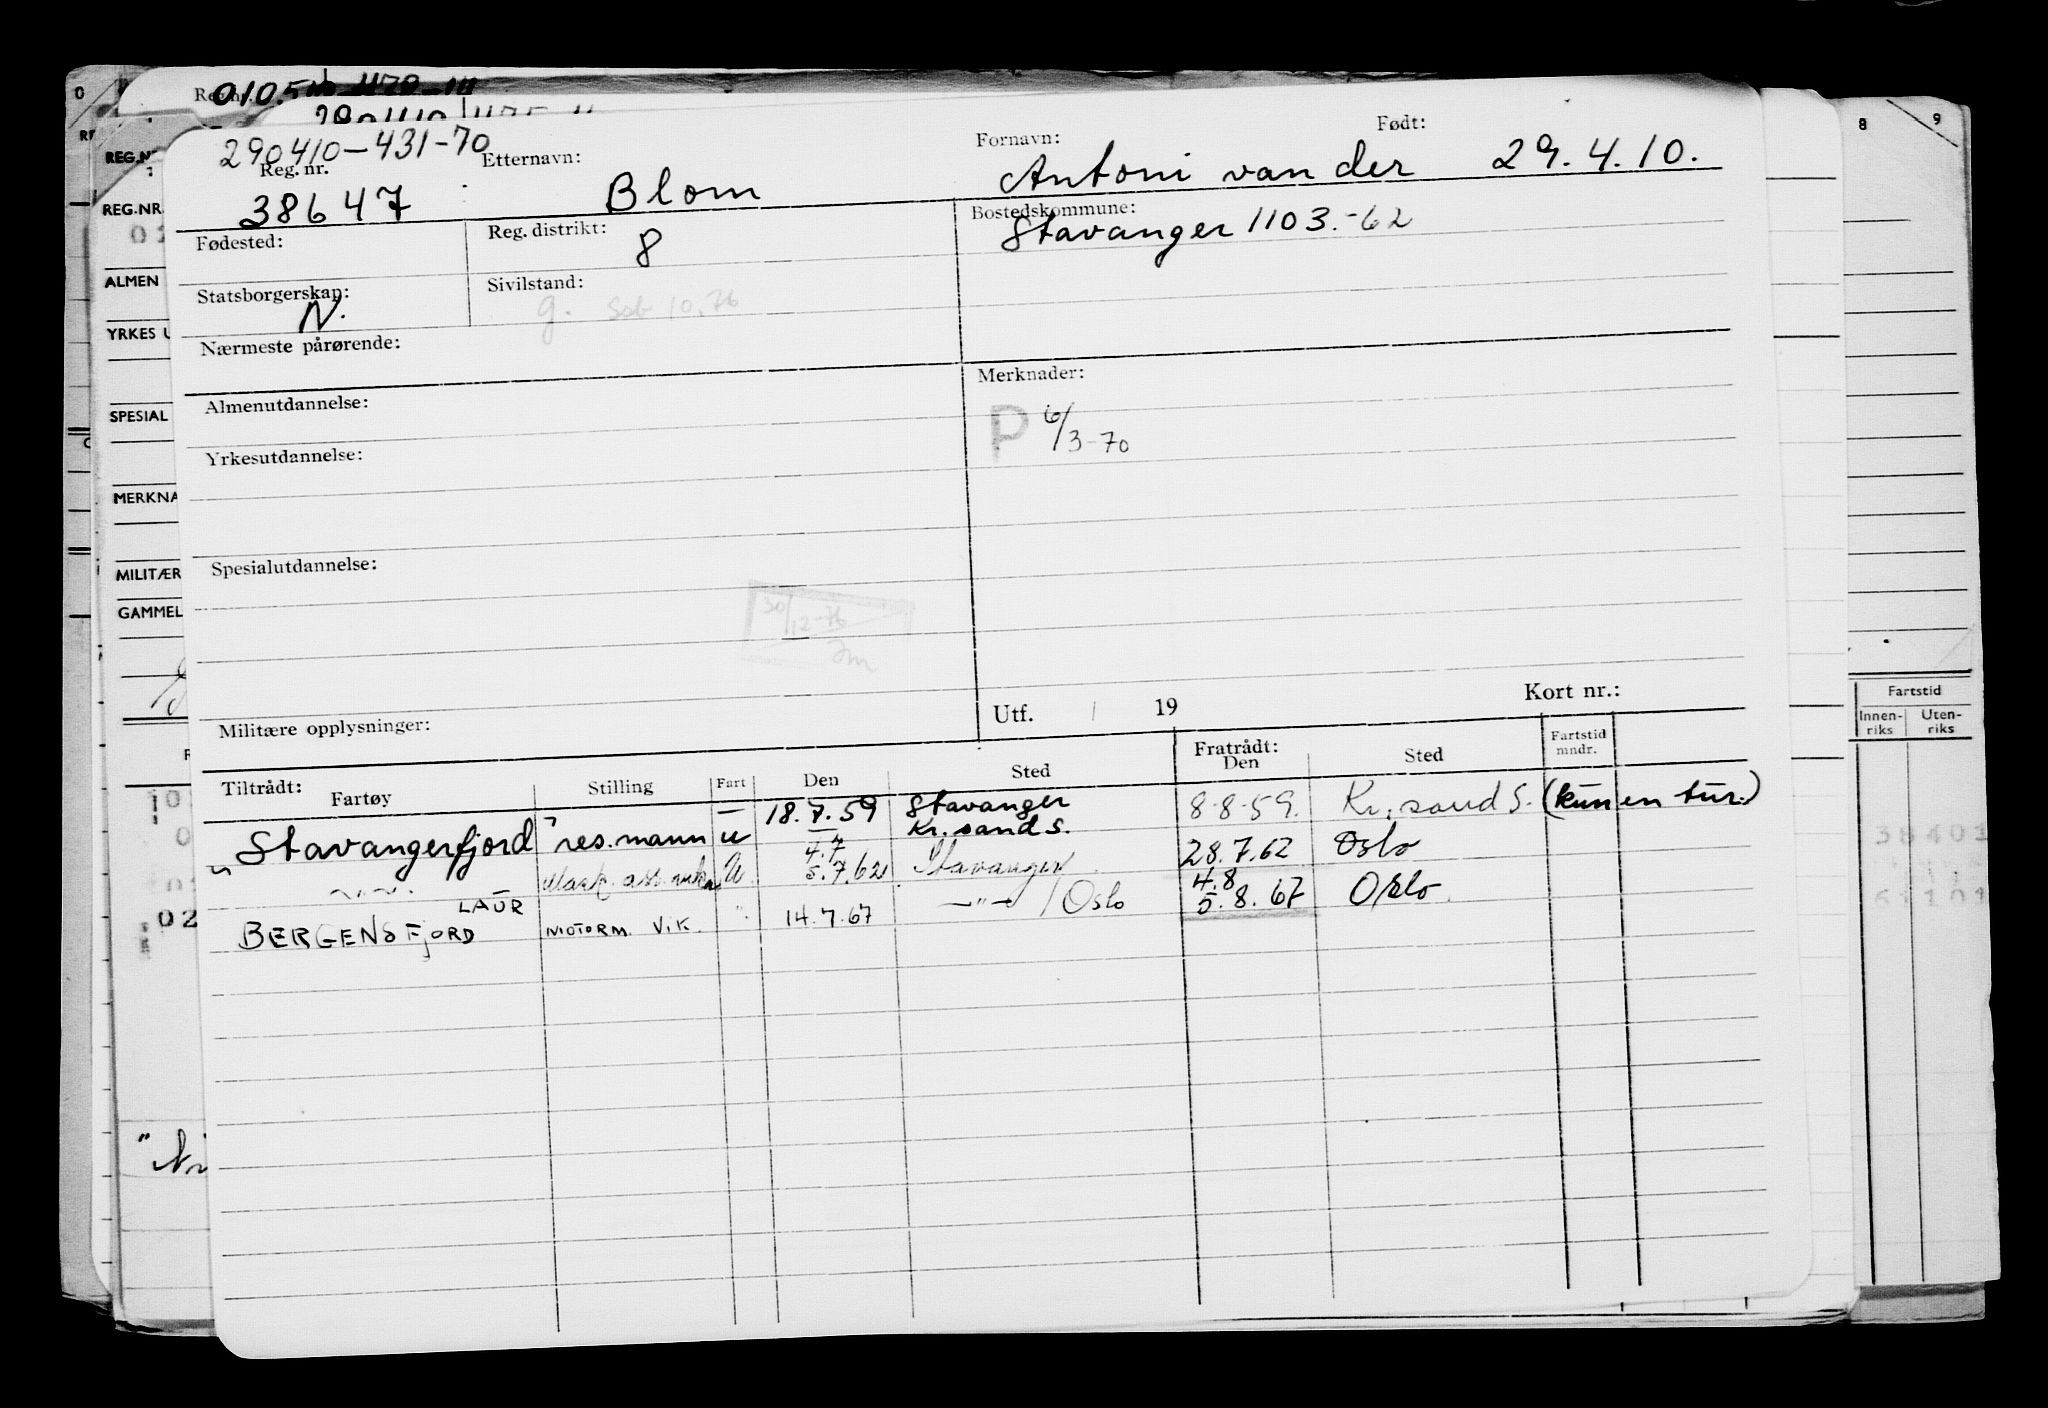 Reg. nr. 010.5
290410
290410-431-70
Reg. nr.
38647
Etternavn:
Blom
Fornavn:
Antoni van der
Født:
29.4.10.
Fødested:
Reg. distrikt:
8
Bostedskommune:
Stavanger 1103.-62
Statsborgerskap:
N.
Sivilstand:
g. Ssb 10.76
Nærmeste pårørende:
Almenutdannelse:
Merknader:
P 6/3-70
Yrkesutdannelse:
Spesialutdannelse:
30/12-76
Jm
Militære opplysninger:
Utf. / 19
Kort nr.:
Tiltrådt:
Fartøy
Stilling
Fart
Den
Sted
Fratrådt:
Den
Sted
Fartstid
mndr.
Stavangerfjord res.mann u 18.7.59 Stavanger
Kr.sand S. 8-8-59. Kr.sand S. (kun en tur.)
4.7
5.7.62 Stavanger 28.7.62 Oslo
U.
LAUR
BERGENSFJORD MOTORM. VIK. " 14.7.67 —"— / Oslo 4.8
5.8.67 Oslo.
REG.NR.
ALMEN
YRKES U
SPESIAL
MERKNA
MILITÆR
GAMMEL
02
8
9
Fartstid
Innen-
riks
Uten-
riks